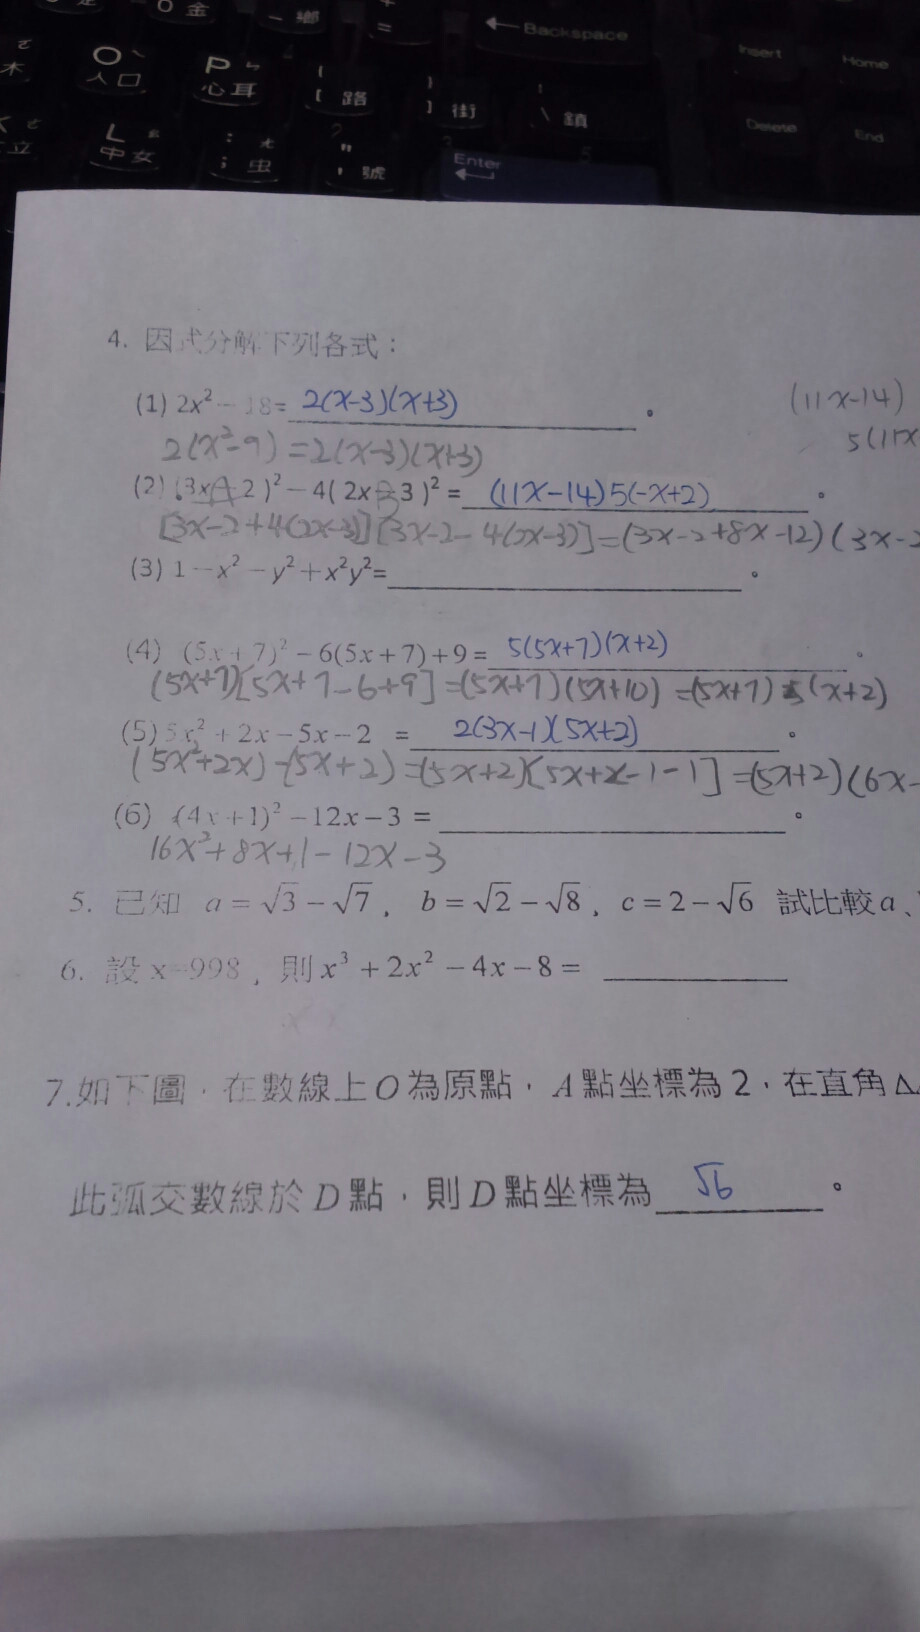 O 金
一 鄉
+ =
← Backspace
Insert
Home
木
O ㄟ 人 口
P ㄣ 心 耳
{ [ 路
} ] 街
\ 鎮
Delete
End
立
L ㄠ 中 女
: ; ㄤ 虫
" ' 號
Enter
4. 因式分解下列各式：
(1) 2x² − 18= 2(x-3)(x+3) 。
(11x-14)
2(x²-9) =2(x-3)(x+3)
5(11x
(2) (3x-2)² − 4( 2x-3 )² = (11x-14)5(-x+2) 。
[3x-2+4(2x-3)][3x-2-4(2x-3)]=(3x-2+8x-12)(3x-2
(3) 1 − x² − y² + x²y²= 。
(4) (5x + 7)² − 6(5x + 7) + 9 = 5(5x+7)(x+2) 。
(5x+7)[5x+7-6+9] =(5x+7)(5x+10) =(5x+7)5(x+2)
(5) 5x² + 2x − 5x − 2 = 2(3x-1)(5x+2) 。
(5x²+2x)-(5x+2)=(5x+2)[5x+x-1-1]=(5x+2)(6x-
(6) (4x + 1)² − 12x − 3 = 。
16x²+8x+1-12x-3
5. 已知 a = √3 − √7 , b = √2 − √8 , c = 2 − √6 試比較 a、
6. 設 x=998 , 則 x³ + 2x² − 4x − 8 =
7.如下圖，在數線上 O 為原點，A 點坐標為 2，在直角 △
此弧交數線於 D 點，則 D 點坐標為 √6 。